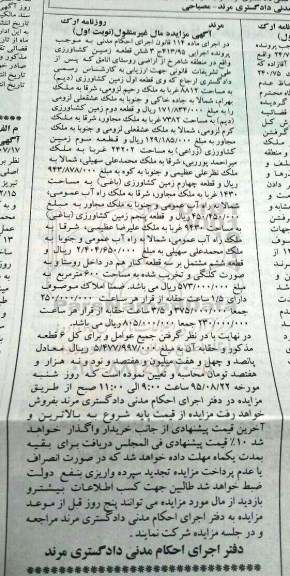 مرند
روزنامه ارک
آگهی مزایده مال غیرمنقول(نوبت اول)
در اجرای ماده ۱۱۴ قانون اجرای احکام مدنی به موجب
پرونده اجرایی شش قطعه زمین کشاورزی
واقع در منطقه شاهرخ از اراضی روستای انامق که پس از
طی تشریفات قانونی جهت ارزیابی به کارشناس رسمی
دادگستری ارجاع که وی قطعه اول زمین کشاورزی (دیم)
به مساحت ۸۸۱۲ غربا به ملک رحیم لزومی، شرقا به ملک
بهرام، شمالا به جاده خاکی و جنوبا به ملک عشقعلی لزومی
به مبلغ ریال و قطعه دوم زمین کشاورزی
(دیم) به مساحت ۷۳۸۲ غربا به ملک مجاور، شرقا به ملک
کرم لزومی، شمالا به ملک عشقعلی لزومی و جنوبا به ملک
مجاور به مبلغ ۱۲۹/۱۸۵/۰۰۰ ریال و قطعه سوم زمین
کشاورزی (زراعی) به مساحت ۲۴۲۰۲ غربا به ملک
میراحمد پورربی، شرقا به ملک محمدعلی سهیلی، شمالا به
ملک نظرعلی عظیمی و جنوبا به کوه به مبلغ ۹۴۳/۸۷۸/۰۰۰
ریال و قطعه چهارم زمین کشاورزی (باغی) به مساحت
۱۴۳۰ غربا به ملک مجاور، شرقا به ملک راه آب عمومی،
شمالا به راه آب عمومی و جنوبا به ملک مجاور به مبلغ
۴۵۰/۴۵۰/۰۰۰ ریال و قطعه پنجم زمین کشاورزی (باغی)
به مساحت ۹۴۳۰ غربا به ملک علیرضا عظیمی، شرقا به
ملک راه آب عمومی، شمالا به راه آب عمومی و جنوبا به
ملک محمدعلی سهیلی به مبلغ ۲/۴۰۴/۶۵۰/۰۰۰ ریال و
قطعه ششم مشتمل بر سه قطعه کنار هم در داخل روستا و به
صورت کلنگی و تخریب شده به مساحت ۶۰۰ مترمربع به
مبلغ ۵۷۳/۰۰۰/۰۰۰ ریال می باشد. ضمنا املاک موصوف
دارای ۱/۵ ساعت حقابه از قرار هر ساعت ۲۵۰/۰۰۰/۰۰۰
جمعا ۳۷۵/۰۰۰/۰۰۰ و ۳/۵ ساعت حقابه از قرار هر ساعت
۲۳۰/۰۰۰/۰۰۰ جمعا ۸۰۵/۰۰۰/۰۰۰ ریال می باشد.
در نهایت با در نظر گرفتن جمیع عوامل و برای کل ۶ قطعه
مذکور و حقابه آن به مبلغ ۵/۴۷۷/۹۹۷/۰۰۰ ریال معادل
پانصد و چهل و هفت میلیون و هفتصد و نود و نه هزار و
هفتصد تومان محاسبه و تعیین نموده است که روز شنبه
مورخه ۹۵/۰۸/۲۲ ساعت ۹:۰۰ الی ۱۱:۰۰ صبح از طریق
مزایده در دفتر اجرای احکام مدنی دادگستری مرند بفروش
خواهد رفت مزایده از قیمت پایه شروع به بالاترین و
آخرین قیمت پیشنهادی از جانب خریدار واگذار خواهد
شد ۱۰٪ قیمت پیشنهادی فی المجلس دریافت برای بقیه
بمدت یکماه مهلت داده خواهد شد که در صورت انصراف
یا عدم پرداخت مزایده تجدید سپرده واریزی بنفع دولت
ضبط خواهد شد طالبین جهت کسب اطلاعات بیشتر و
بازدید از مال مورد مزایده می توانند پنج روز قبل از موعد
مزایده به دفتر اجرای احکام مدنی دادگستری مرند مراجعه
و در جلسه مزایده شرکت نمایند.
دفتر اجرای احکام مدنی دادگستری مرند